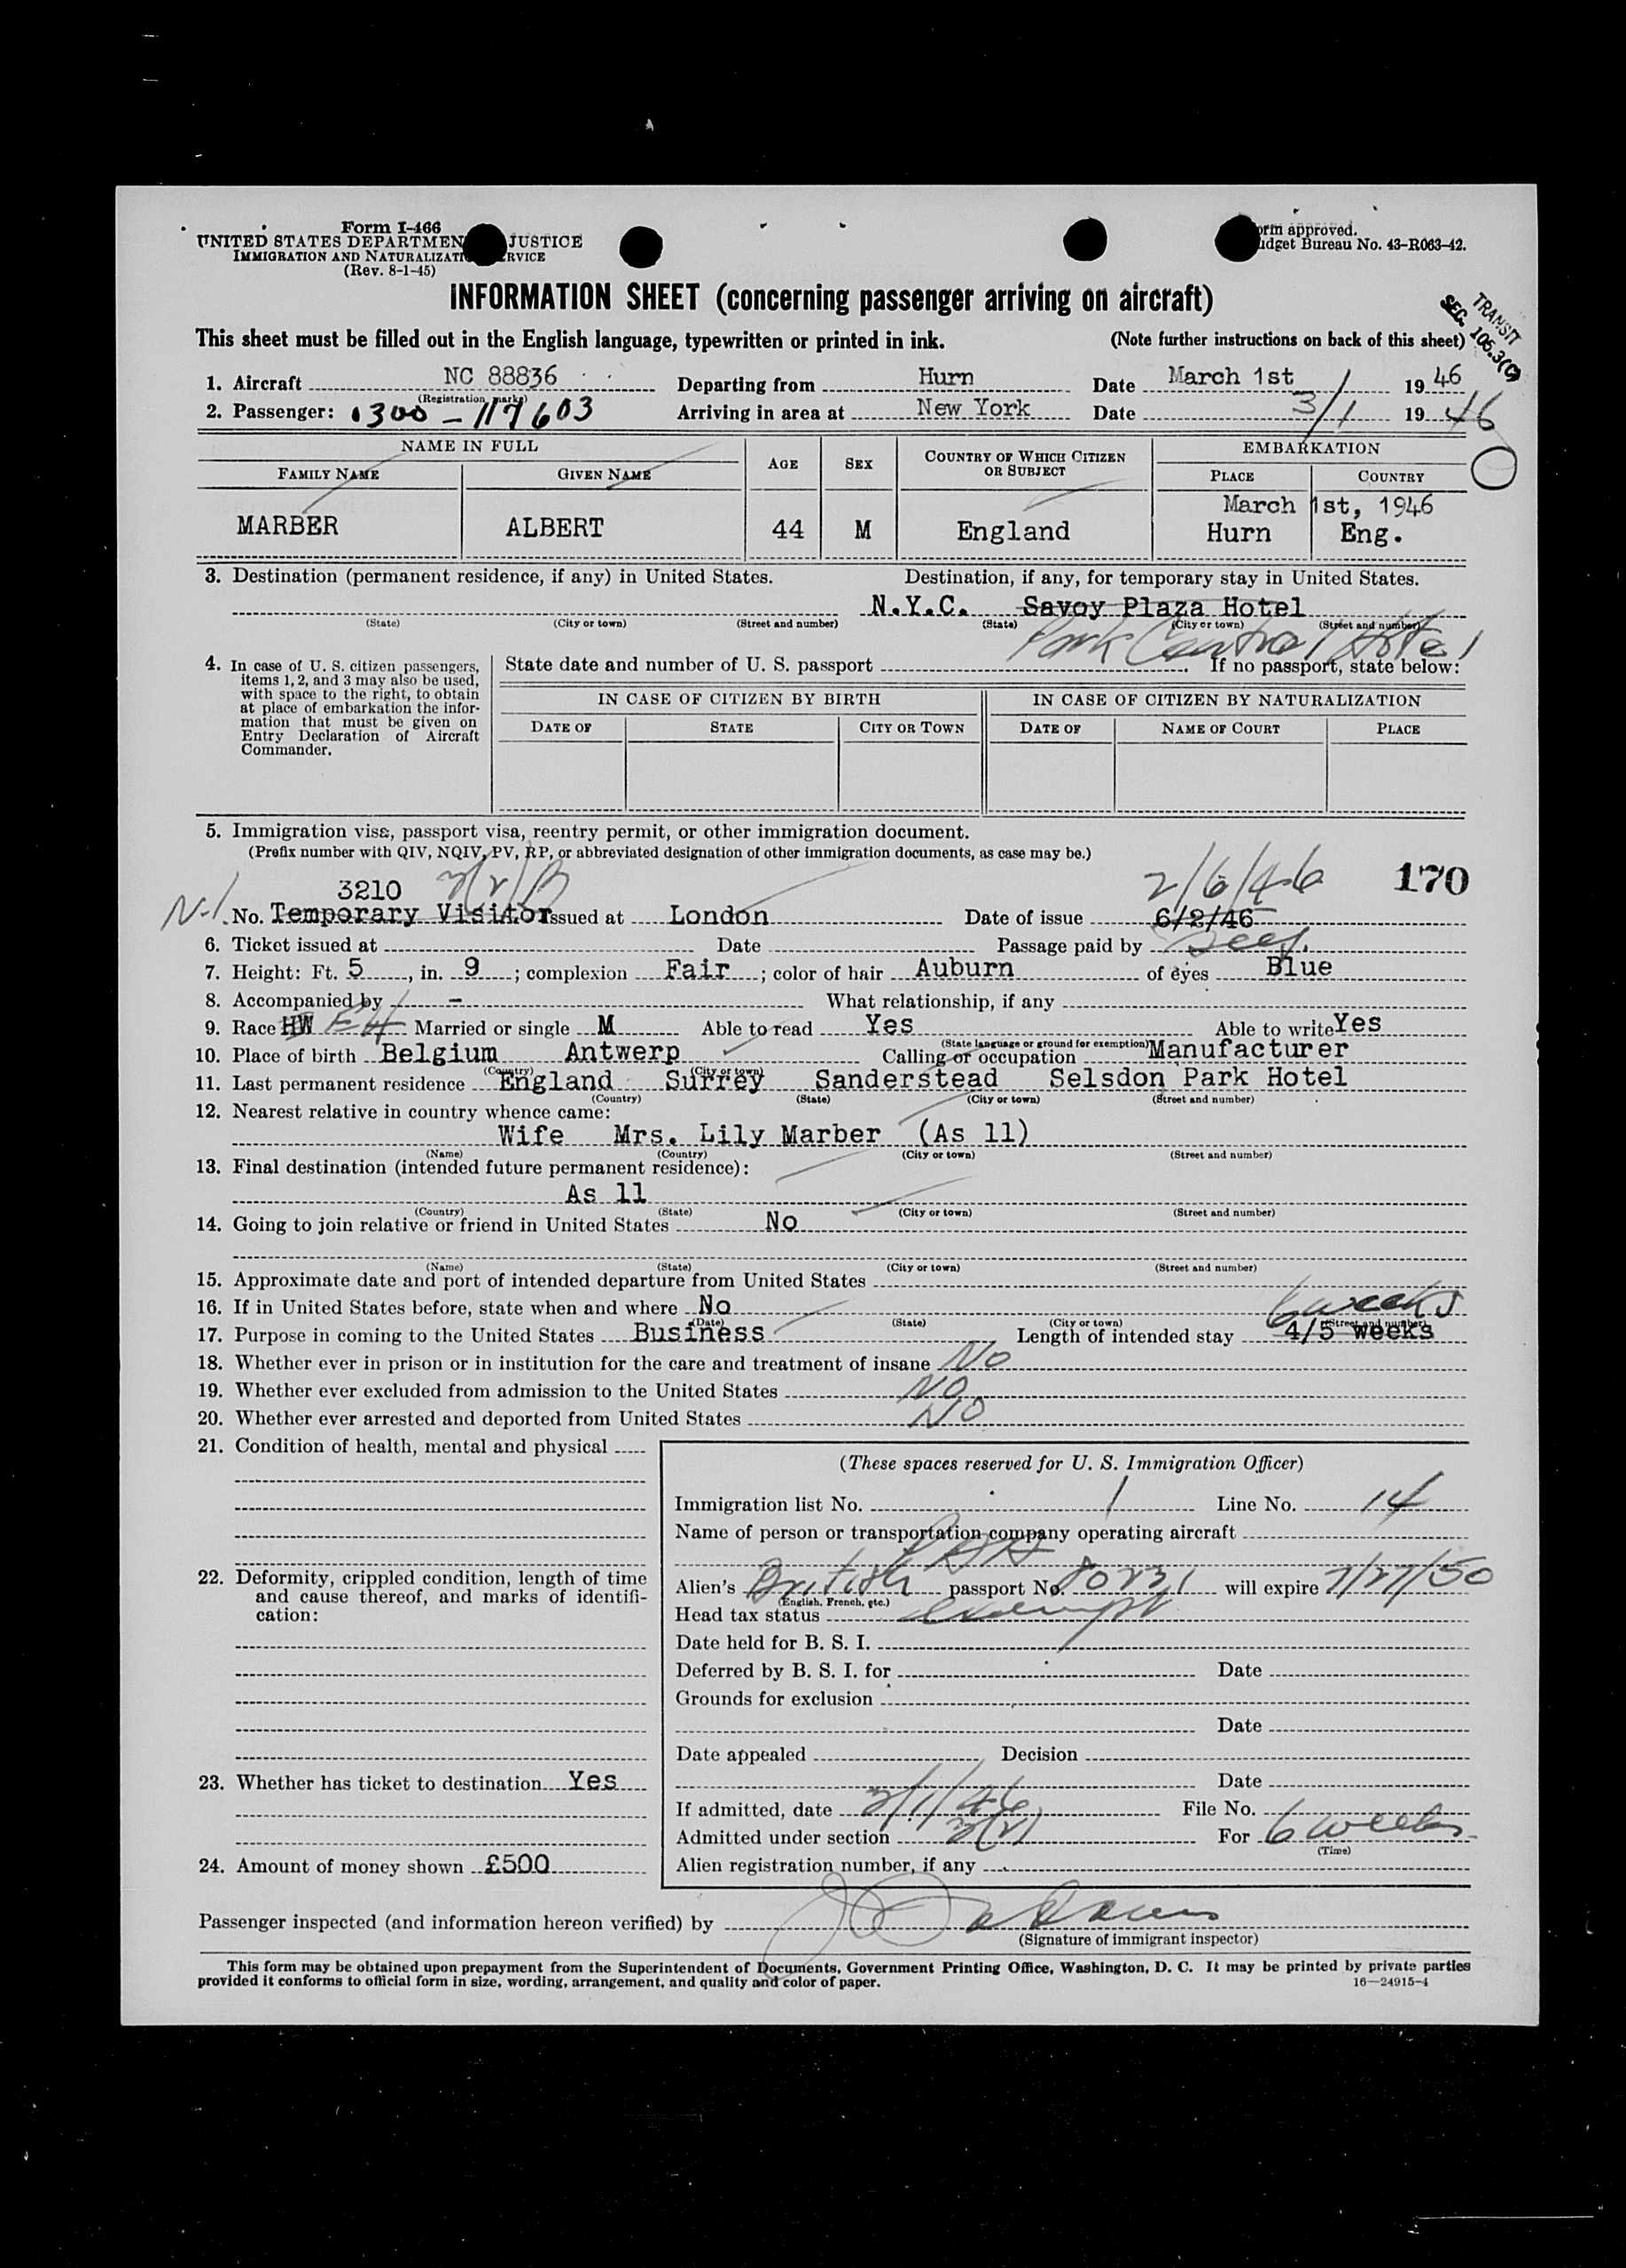 Form I-466
UNITED STATES DEPARTMEN JUSTICE
IMMIGRATION AND NATURALIZATI RVICE
(Rev. 8-1-45)
orm approved.
udget Bureau No. 43-R063-42.
INFORMATION SHEET (concerning passenger arriving on aircraft)
TRANSIT
SEC. 105.3(C)
This sheet must be filled out in the English language, typewritten or printed in ink. (Note further instructions on back of this sheet)
1. Aircraft NC 88836 Departing from Hurn Date March 1st 1946
(Registration marks)
2. Passenger: 1300-117603 Arriving in area at New York Date 3/1 1946
NAME IN FULL AGE SEX COUNTRY OF WHICH CITIZEN OR SUBJECT EMBARKATION
FAMILY NAME GIVEN NAME PLACE COUNTRY
March 1st, 1946
MARBER ALBERT 44 M England Hurn Eng.
3. Destination (permanent residence, if any) in United States. Destination, if any, for temporary stay in United States.
N.Y.C. Savoy Plaza Hotel
(State) (City or town) (Street and number) (State) (City or town) (Street and number)
Park Central Hotel
4. In case of U. S. citizen passengers, items 1, 2, and 3 may also be used, with space to the right, to obtain at place of embarkation the information that must be given on Entry Declaration of Aircraft Commander.
State date and number of U. S. passport If no passport, state below:
IN CASE OF CITIZEN BY BIRTH IN CASE OF CITIZEN BY NATURALIZATION
DATE OF STATE CITY OR TOWN DATE OF NAME OF COURT PLACE
5. Immigration visa, passport visa, reentry permit, or other immigration document.
(Prefix number with QIV, NQIV, PV, RP, or abbreviated designation of other immigration documents, as case may be.)
3210 3(2)B 2/6/46 170
N-1 No. Temporary Visitor Issued at London Date of issue 6/2/46
6. Ticket issued at Date Passage paid by Self
7. Height: Ft. 5, in. 9; complexion Fair; color of hair Auburn of eyes Blue
8. Accompanied by - What relationship, if any
9. Race HW Married or single M Able to read Yes Able to write Yes
(State language or ground for exemption)
10. Place of birth Belgium Antwerp Calling or occupation Manufacturer
(Country) (City or town)
11. Last permanent residence England Surrey Sanderstead Selsdon Park Hotel
(Country) (State) (City or town) (Street and number)
12. Nearest relative in country whence came:
Wife Mrs. Lily Marber (As 11)
(Name) (Country) (City or town) (Street and number)
13. Final destination (intended future permanent residence):
As 11
(Country) (State) (City or town) (Street and number)
14. Going to join relative or friend in United States No
(Name) (State) (City or town) (Street and number)
15. Approximate date and port of intended departure from United States
16. If in United States before, state when and where No
(Date) (State) (City or town) (Street and number)
6 weeks
17. Purpose in coming to the United States Business Length of intended stay 4/5 weeks
18. Whether ever in prison or in institution for the care and treatment of insane No
19. Whether ever excluded from admission to the United States No
20. Whether ever arrested and deported from United States No
21. Condition of health, mental and physical
22. Deformity, crippled condition, length of time and cause thereof, and marks of identification:
23. Whether has ticket to destination Yes
24. Amount of money shown £500
(These spaces reserved for U. S. Immigration Officer)
Immigration list No. 1 Line No. 14
Name of person or transportation company operating aircraft
PAA
Alien's British passport No. 70231 will expire 7/27/50
(English, French, etc.)
Head tax status exempt
Date held for B. S. I.
Deferred by B. S. I. for Date
Grounds for exclusion
Date
Date appealed Decision
Date
If admitted, date 3/1/46 File No.
Admitted under section 3(2) For 6 weeks
(Time)
Alien registration number, if any
Passenger inspected (and information hereon verified) by
(Signature of immigrant inspector)
This form may be obtained upon prepayment from the Superintendent of Documents, Government Printing Office, Washington, D. C. It may be printed by private parties
provided it conforms to official form in size, wording, arrangement, and quality and color of paper. 16—24915-4